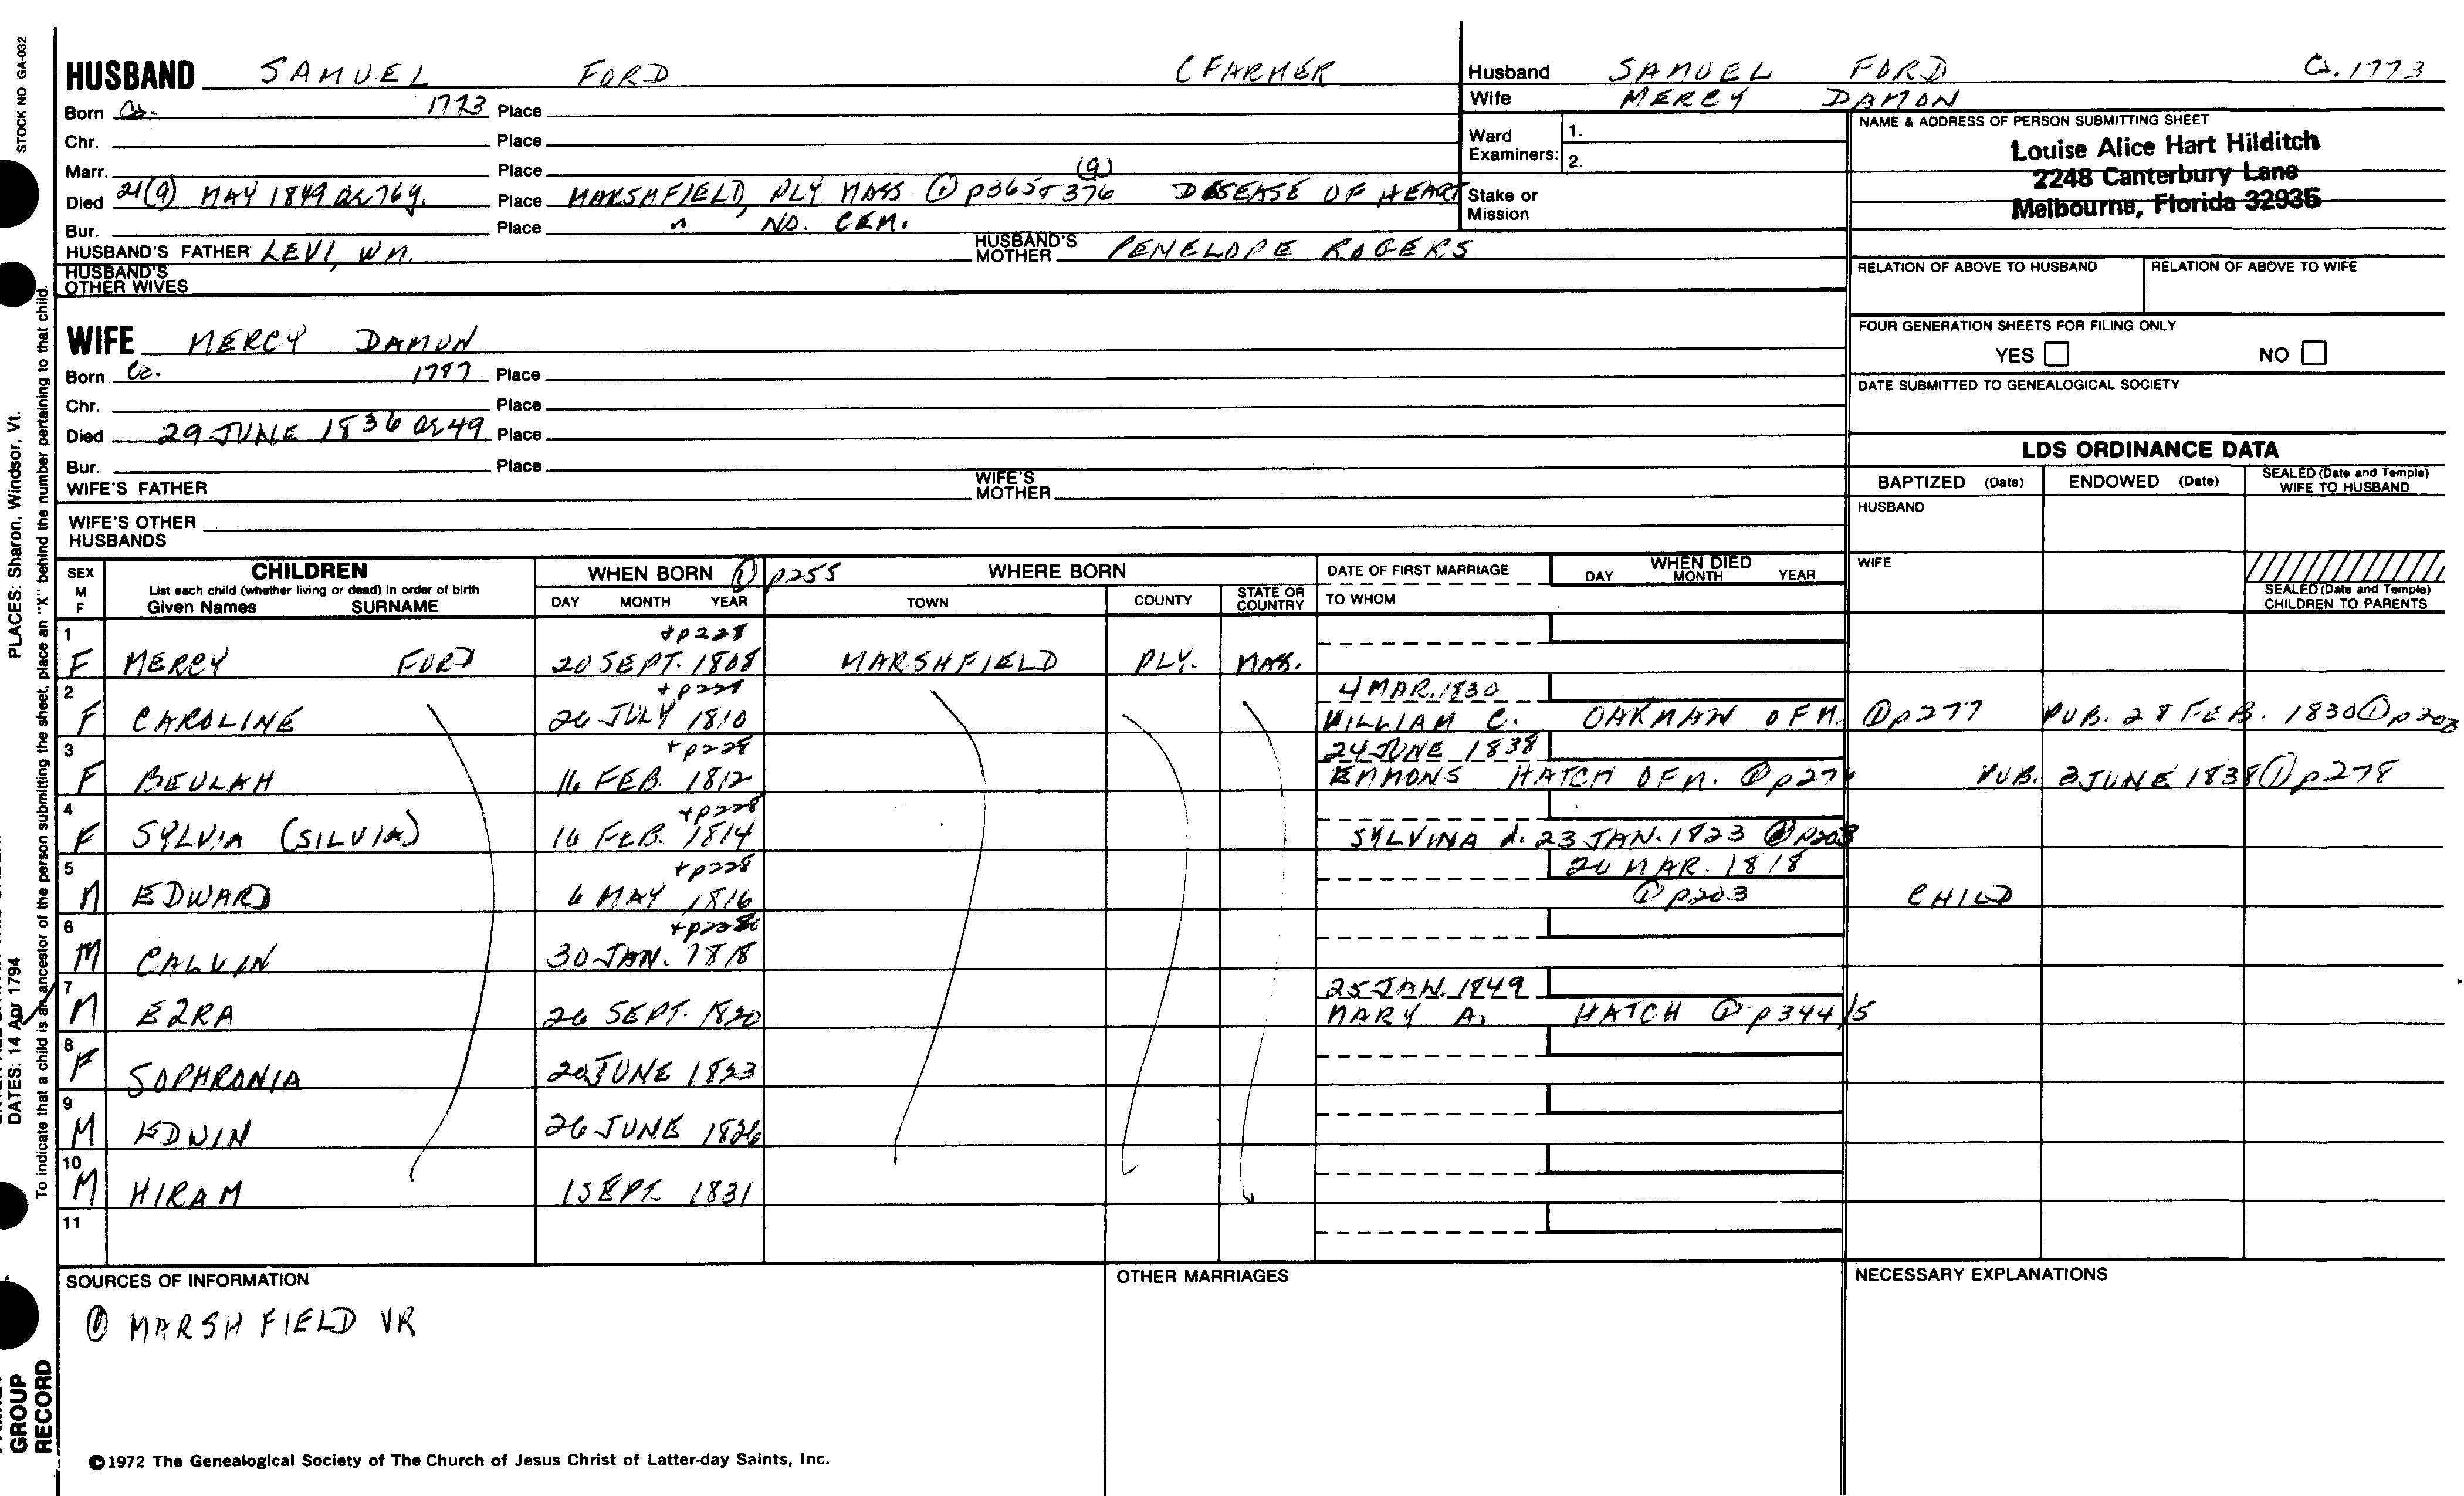 STOCK NO GA-032
HUSBAND SAMUEL FORD (FARMER
Born Ca. 1773 Place
Chr. Place
Marr. Place
Died 21(9) MAY 1849 ae 76y. Place MARSHFIELD, PLY MASS ① p365+376 (9) DESEASE OF HEART
Bur. Place " NO. CEM.
HUSBAND'S FATHER LEVI, WM. HUSBAND'S MOTHER PENELOPE ROGERS
HUSBAND'S OTHER WIVES
Husband SAMUEL FORD Ca. 1773
Wife MERCY DAMON
Ward Examiners: 1.
2.
Stake or Mission
NAME & ADDRESS OF PERSON SUBMITTING SHEET
Louise Alice Hart Hilditch
2248 Canterbury Lane
Melbourne, Florida 32935
RELATION OF ABOVE TO HUSBAND RELATION OF ABOVE TO WIFE
FOUR GENERATION SHEETS FOR FILING ONLY
YES NO
DATE SUBMITTED TO GENEALOGICAL SOCIETY
WIFE MERCY DAMON
Born Ca. 1787 Place
Chr. Place
Died 29 JUNE 1836 ae 49 Place
Bur. Place
WIFE'S FATHER WIFE'S MOTHER
WIFE'S OTHER HUSBANDS
LDS ORDINANCE DATA
BAPTIZED (Date) ENDOWED (Date) SEALED (Date and Temple) WIFE TO HUSBAND
HUSBAND
WIFE
SEALED (Date and Temple) CHILDREN TO PARENTS
SEX M F
CHILDREN
List each child (whether living or dead) in order of birth
Given Names SURNAME
WHEN BORN ① p255
DAY MONTH YEAR
WHERE BORN
TOWN COUNTY STATE OR COUNTRY
DATE OF FIRST MARRIAGE
TO WHOM
WHEN DIED
DAY MONTH YEAR
1 +p228
F MERCY FORD 20 SEPT. 1808 MARSHFIELD PLY. MAS.
2 +p228 4 MAR. 1830
F CAROLINE 26 JULY 1810 WILLIAM C. OAKMAN OF M. ① p277 PUB. 28 FEB. 1830 ① p203
3 +p228 24 JUNE 1838
F BEULAH 16 FEB. 1812 EMMONS HATCH OF M. ① p274 PUB. 3 JUNE 1838 ① p278
4 +p228
F SYLVIA (SILVIA) 16 FEB. 1814 SYLVINA d. 23 JAN. 1823 ① p203
5 +p228 20 MAR. 1818
M EDWARD 6 MAY 1816 ① p203 CHILD
6 +p228
M CALVIN 30 JAN. 1818
7 25 JAN. 1849
M EZRA 26 SEPT. 1820 MARY A. HATCH ① p344/5
8
F SOPHRONIA 20 JUNE 1823
9
M EDWIN 26 JUNE 1826
10
M HIRAM 1 SEPT. 1831
11
SOURCES OF INFORMATION
① MARSHFIELD VR
OTHER MARRIAGES
NECESSARY EXPLANATIONS
©1972 The Genealogical Society of The Church of Jesus Christ of Latter-day Saints, Inc.
PLACES: Sharon, Windsor, Vt.
DATES: 14 Apr 1794
To indicate that a child is an ancestor of the person submitting the sheet, place an "X" behind the number pertaining to that child.
GROUP
RECORD